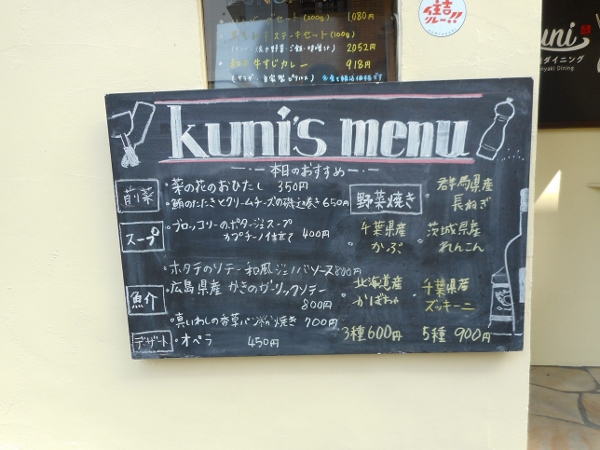 1,080円
ステーキセット(100g)
2052円
牛すじカレー
918円
住吉
グルー!!
uni
ダイニング
yaki Dining
kuni's menu
本日のおすすめ
前菜
・菜の花のおひたし 350円
・鮪のたたきとクリームチーズの磯辺巻き 650円
スープ
・ブロッコリーのポタージュスープ
カプチーノ仕立て 400円
魚介
・ホタテのソテー 和風ジェノバソース 800円
・広島県産 かきのガーリックソテー
800円
・真いわしの香草パン粉焼き 700円
デザート
・オペラ 450円
野菜焼き
群馬県産
長ねぎ
千葉県産
かぶ
茨城県産
れんこん
北海道産
かぼちゃ
千葉県産
ズッキーニ
3種600円
5種 900円